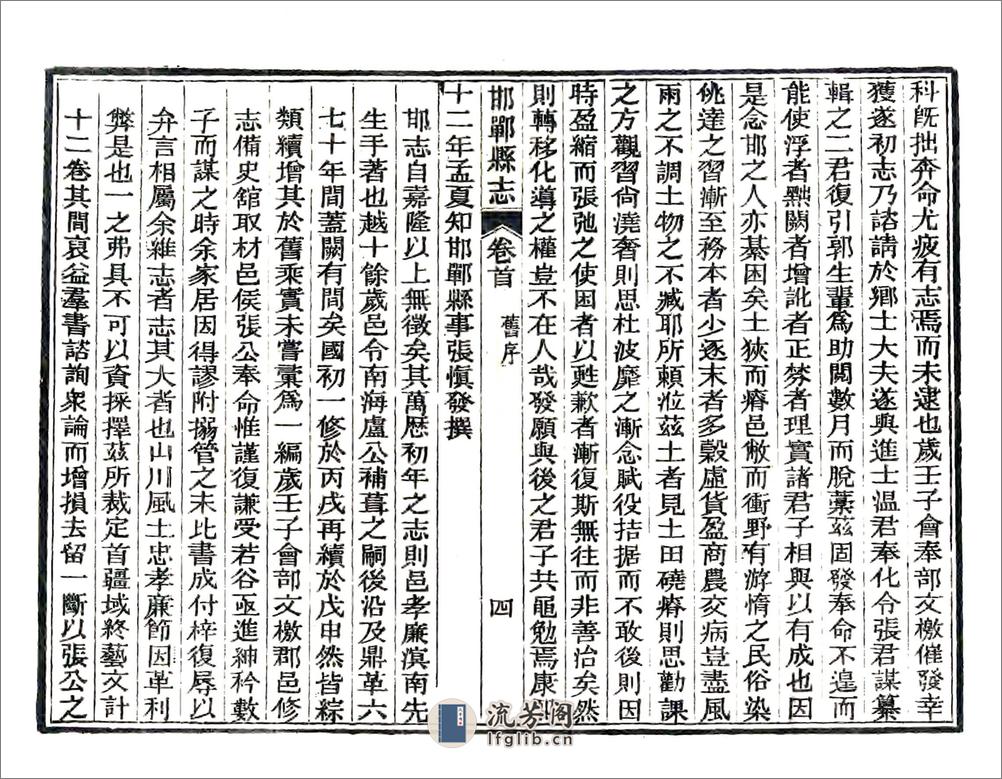 科旣拙奔命尤疲有志焉而未逮也歲壬子會奉部文檄催發幸
獲遂初志乃諮請於鄉士大夫遂與進士温君奉化令張君謀纂
輯之二君復引郭生輩爲助閱數月而脫藁茲固發奉命不遑而
能使浮者黜闕者增訛者正棼者理實諸君子相與以有成也因
是念邯之人亦綦困矣土狹而瘠邑敝而衝野有游惰之民俗染
佻達之習漸至務本者少逐末者多穀虛貨盈商農交病豈盡風
雨之不調土物之不臧耶所賴涖茲土者見土田磽瘠則思勸課
之方觀習尙澆奢則思杜波靡之漸念賦役拮据而不敢後則因
時盈縮而張弛之使困者以甦歉者漸復斯無往而非善治矣然
則轉移化導之權豈不在人哉發願與後之君子共黽勉焉康熙
十二年孟夏知邯鄲縣事張愼發撰
邯鄲縣志 卷首 舊序 四
邯志自嘉隆以上無徵矣其萬歷初年之志則邑孝廉滇南先
生手著也越十餘歲邑令南海盧公補葺之嗣後沿及鼎革六
七十年間蓋闕有間矣國初一修於丙戌再續於戊申然皆綜
類續增其於舊乘實未嘗彙爲一編歲壬子會部文檄郡邑修
志備史舘取材邑侯張公奉命惟謹復謙受若谷亟進紳衿數
子而謀之時余家居因得謬附搦管之末比書成付梓復辱以
弁言相屬余維志者志其大者也山川風土忠孝廉節因革利
弊是也一之弗具不可以資採擇茲所裁定首疆域終藝文計
十二卷其間裒益羣書諮詢衆論而增損去留一斷以張公之
流芳閣
lfglib.cn